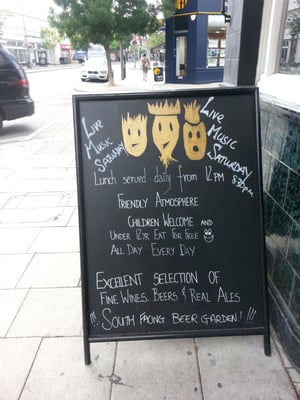 Live
Music
Saturday
Live
Music
Saturday
8:30pm
Lunch served daily from 12pm
Friendly Atmosphere
Children Welcome and
Under 12yr Eat for Free
All Day Every Day
Excellent Selection of
Fine Wines, Beers & Real Ales
!!! South Facing Beer Garden! !!!